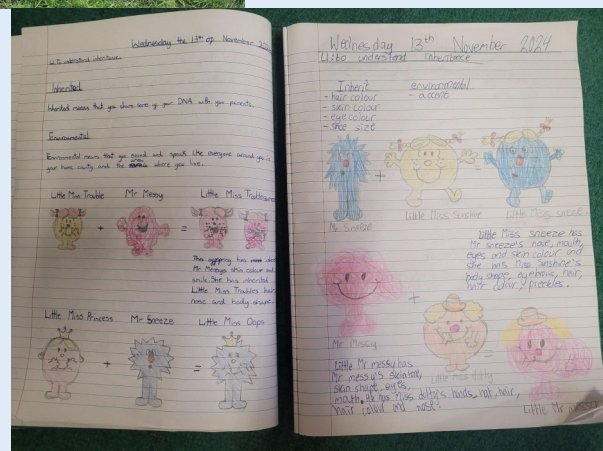 Wednesday the 13th of November 2024
LI to understand inheritance.
Inherited
Inherited means that you share some of your DNA with your parents.
Environmental
Environmental means that you sound and speak like everyone around you in
your home county and the area where you live.
Little Miss Trouble
Mr Messy
Little Miss
+
=
This offspring has
Mr Messys skin colour and
smile. She has inherited
Little Miss Troubles hair
nose and body shape.
Little Miss Princess
Mr Sneeze
Little Miss Oops
+
=
Wednesday 13th November 2024
LI to understand inheritance
Inherit
environmental
- hair colour
- accent
- skin colour
- eye colour
- shoe size
+
=
Mr Sneeze
Little Miss Sunshine
Little Miss sneeze
Little Miss sneeze has
Mr sneeze's nose, mouth,
eyes and skin colour and
she has Miss Sunshine's
body shape, eyebrows, hair,
hair colour, freckles.
+
=
Mr Messy
Little miss dotty
Little Mr
Little Mr messy has
Mr messy's skintone,
skin shape, eyes,
mouth. He has Miss dotty's hands, hat, hair,
hair colour and nose.